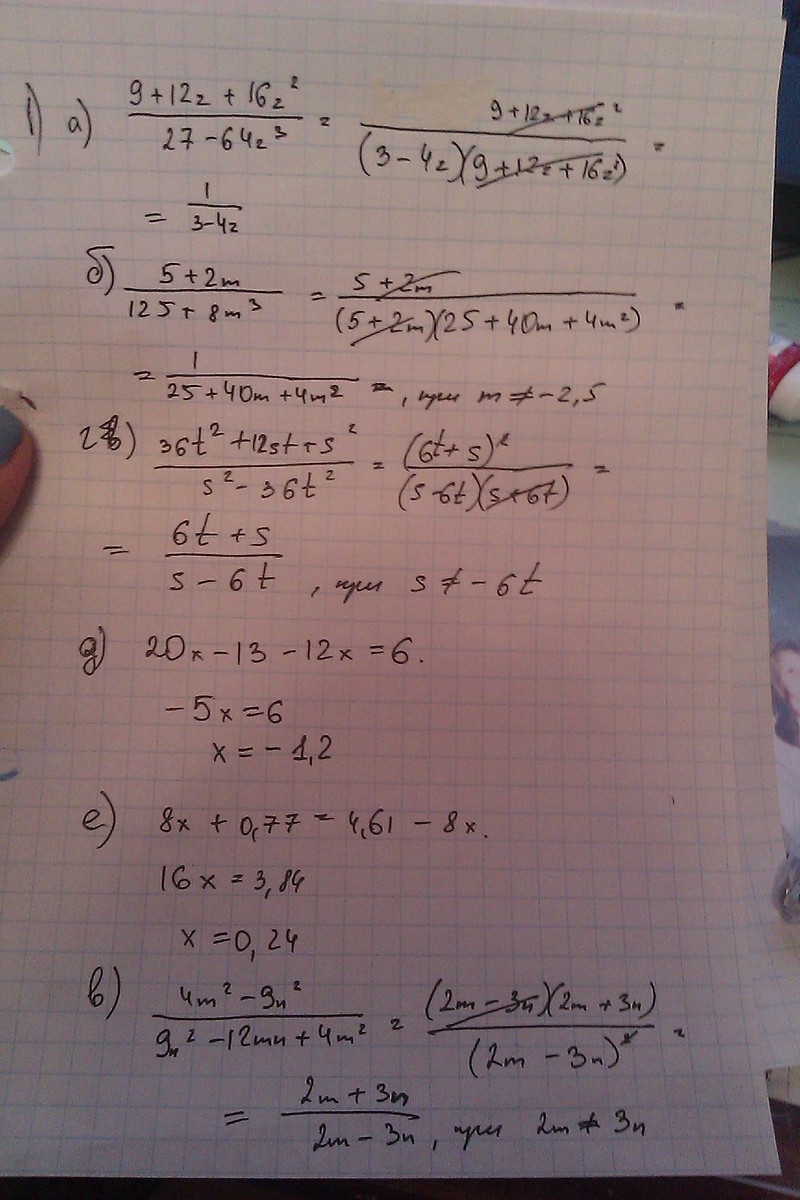 1) а) (9+12z+16z²)/(27-64z³) = (9+12z+16z²)/((3-4z)(9+12z+16z²)) =
= 1/(3-4z)
б) (5+2m)/(125+8m³) = (5+2m)/((5+2m)(25+40m+4m²)) =
= 1/(25+40m+4m²) , при m≠-2,5
г) (36t²+12st+s²)/(s²-36t²) = (6t+s)²/((s-6t)(s+6t)) =
= (6t+s)/(s-6t) , при s≠-6t
д) 20x-13-12x=6.
-5x=6
x=-1,2
е) 8x+0,77=4,61-8x.
16x=3,84
x=0,24
в) (4m²-9n²)/(9n²-12mn+4m²) = ((2m-3n)(2m+3n))/(2m-3n)² =
= (2m+3n)/(2m-3n) , при 2m≠3n